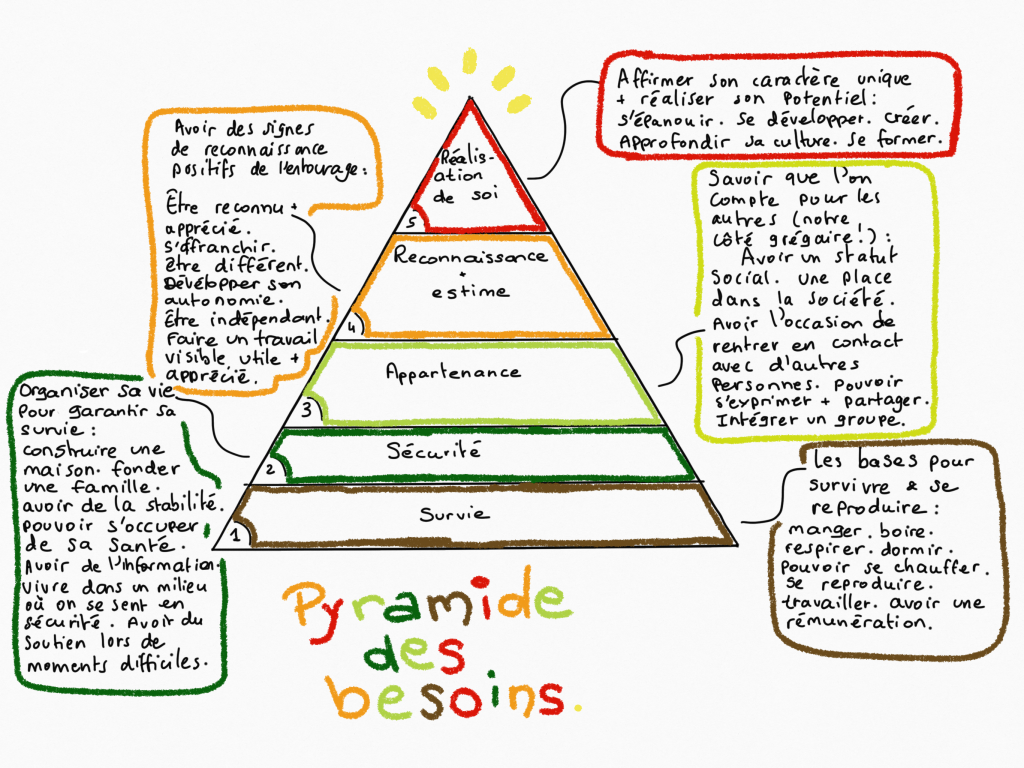 Affirmer son caractère unique
+ réaliser son potentiel :
s'épanouir. Se développer. Créer.
Approfondir sa culture. Se former.
Avoir des signes
de reconnaissance
positifs de l'entourage :
Être reconnu +
apprécié.
S'affranchir.
Être différent.
Développer son
autonomie.
Être indépendant.
Faire un travail
visible, utile +
apprécié.
Réalis-
ation
de soi
5
Savoir que l'on
compte pour les
autres (notre
côté grégaire !) :
Avoir un statut
social. une place
dans la société.
Avoir l'occasion de
rentrer en contact
avec d'autres
personnes. pouvoir
s'exprimer + partager.
Intégrer un groupe.
Reconnaissance
+
estime
4
Appartenance
3
Organiser sa vie
pour garantir sa
survie :
construire une
maison. fonder
une famille.
avoir de la stabilité.
pouvoir s'occuper
de sa santé.
Avoir de l'information.
vivre dans un milieu
où on se sent en
sécurité. Avoir du
soutien lors de
moments difficiles.
Sécurité
2
Les bases pour
survivre & se
reproduire :
manger. boire.
respirer. dormir.
pouvoir se chauffer.
se reproduire.
travailler. avoir une
rémunération.
Survie
1
Pyramide
des
besoins.